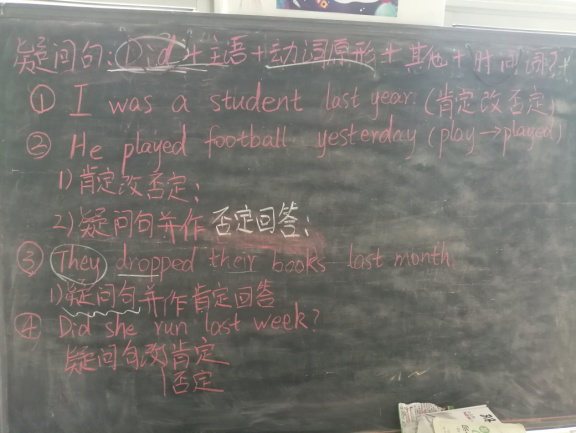 疑问句:Did+主语+动词原形+其他+时间
① I was a student last year.(肯定改否定)
② He played football yesterday (play→played)
1)肯定改否定:
2)疑问句并作否定回答:
③ They dropped their books last month
1)疑问句并作肯定回答
④ Did she run last week?
疑问句改肯定
否定